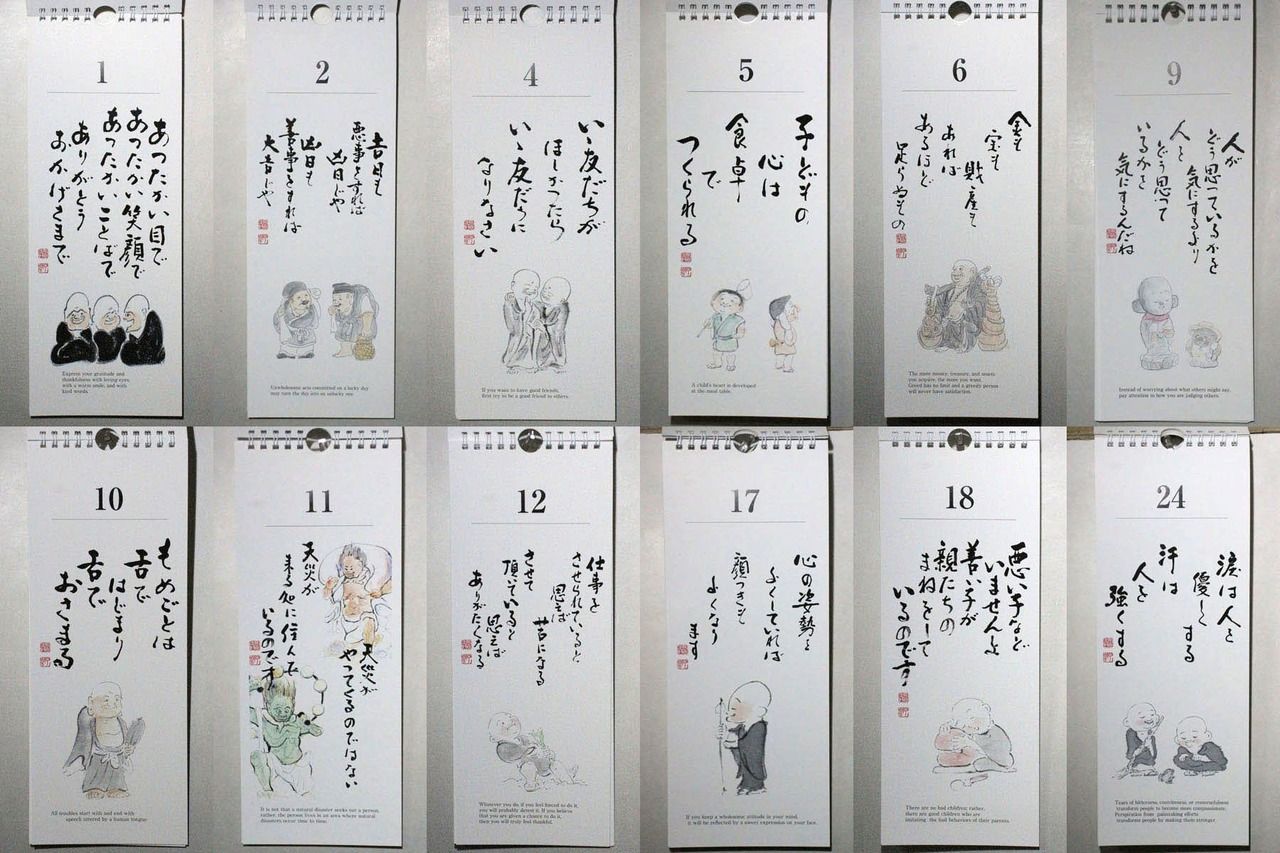 1
あったかい目で
あったかい笑顔で
あったかいことばで
ありがとう
おかげさまで
Express your gratitude and
thankfulness with loving eyes,
with a warm smile, and with
kind words.
2
吉日も
悪事をすれば
凶日じゃ
凶日も
善事をすれば
大吉じゃ
Unwholesome acts committed on a lucky day
may turn the day into an unlucky one.
4
いゝ友だちが
ほしかったら
いゝ友だちに
なりなさい
If you want to have good friends,
first try to be a good friend to others.
5
子どもの
心は
食卓
で
つくられる
A child's heart is developed
at the meal table.
6
金も
宝も
財産も
あれば
あるほど
足らぬもの
The more money, treasure, and assets
you acquire, the more you want.
Greed has no limit and a greedy person
will never have satisfaction.
9
人が
どう思っているかを
気にするより
人を
どう思って
いるかを
気にするんだね
Instead of worrying about what others might say,
pay attention to how you are judging others.
10
もめごとは
舌で
はじまり
舌で
おさまる
All troubles start with and end with
speech uttered by a human tongue
11
天災が
やってくるのではない
天災が
来る処に住んで
いるのです
It is not that a natural disaster seeks out a person,
rather, the person lives in an area where natural
disasters occur time to time.
12
仕事を
させられていると
思えば
苦になる
させて
頂いていると
思えば
ありがたくなる
Whatever you do if you feel forced to do it,
you will probably detest it. If you believe
that you are given a chance to do it,
then you will truly feel thankful.
17
心の姿勢を
よくしていれば
顔つきも
よくなり
ます
If you keep a wholesome attitude in your mind,
it will be reflected by a sweet expression on your face.
18
悪い子など
いませんよ
善い子が
親たちの
まねをして
いるのです
There are no bad children; rather,
there are good children who are
imitating the bad behaviors of their parents.
24
涙は人を
優しく
する
汗は
人を
強くする
Tears of bitterness, contriteness, or remorsefulness
transform people to become more compassionate.
Perspiration from painstaking efforts
transforms people by making them stronger.